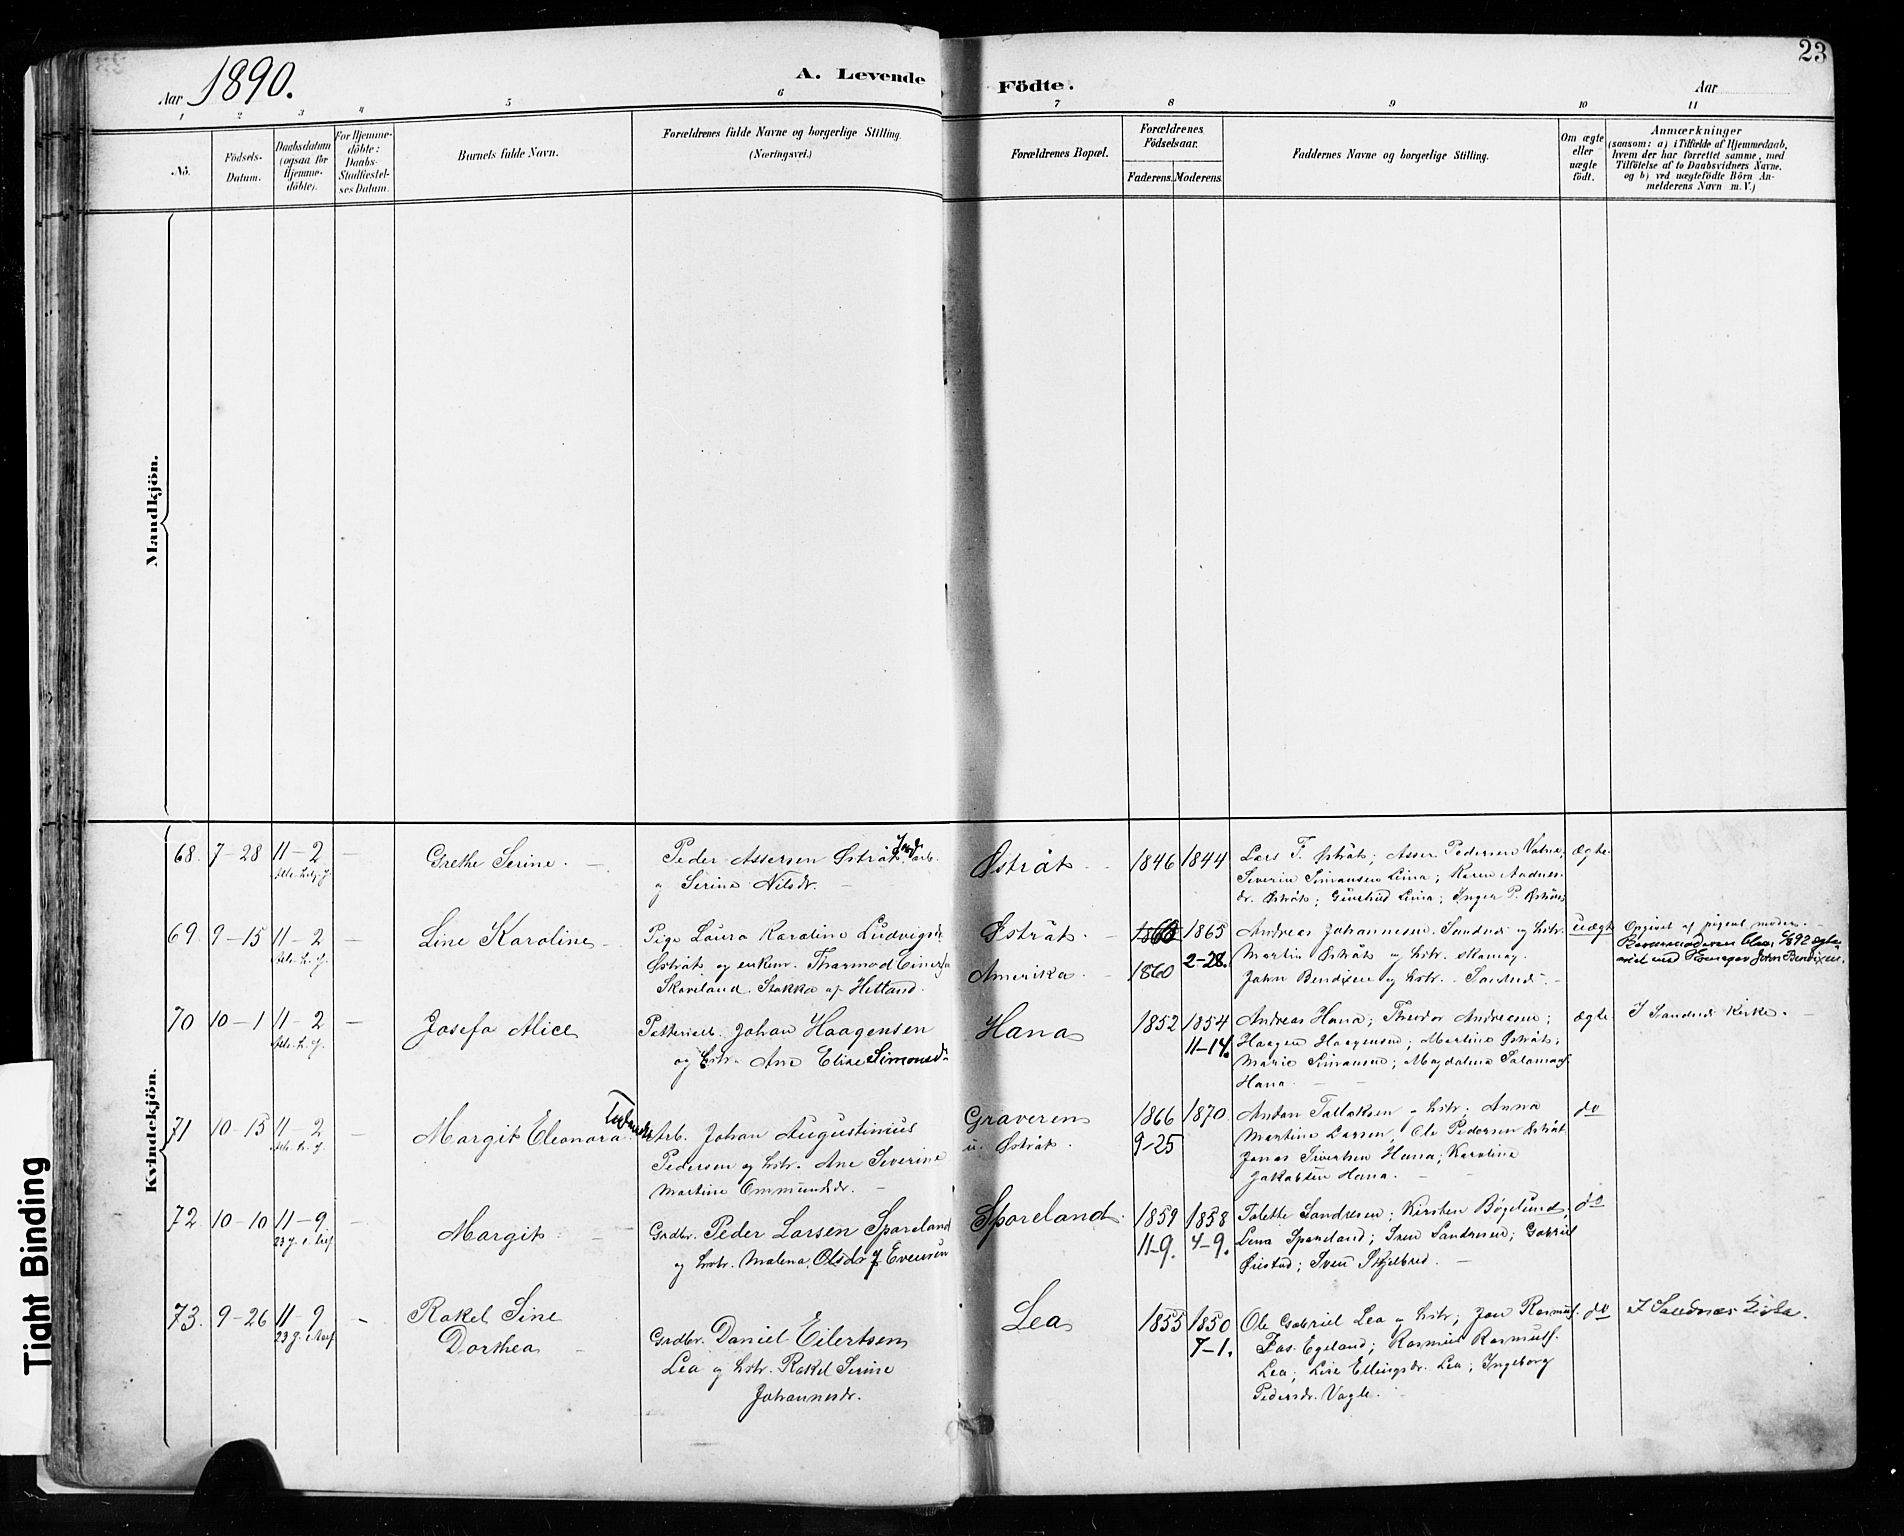 23
Aar 1890.
A. Levende
Födte.
Aar
1
2
3
4
5
6
7
8
9
10
11
No.
Födsels-
Datum.
Daabsdatum
(ogsaa for
Hjemme-
döbte).
For Hjemme-
döbte:
Daabs-
Stadfæstel-
ses Datum.
Barnets fulde Navn.
Forældrenes fulde Navne og borgerlige Stilling.
(Næringsvei.)
Forældrenes Bopæl.
Forældrenes
Födselsaar.
Faderens.
Moderens.
Faddernes Navne og borgerlige Stilling.
Om ægte
eller
uægte
födt.
Anmærkninger
(saasom: a) i Tilfælde af Hjemmedaab,
hvem der har forrettet samme, med
Tilföielse af to Daabsvidners Navne.
og b) ved uægtefödte Börn An-
melderens Navn m. V.)
Mandkjön.
Kvindekjön.
68. 7-28 11-2 — Grethe Serine. —
Peder Assersen Östråt. Jord arb.
og Serina Nilsdr. —
Östråt. — 1846 1844
Lars F. Östråt; Asser Pedersen Vatne;
Severin Simonsen Lima; Karen Aadnes-
dr. Östråt; Gunhild Lima; Inger P. Östråt
ægte
69. 9-15 11-2 — Line Karoline —
Pige Laura Karoline Ludvigsdr.
Östråt og enkem. Tharmod Einers
Skaveland. Stokka af Hetland.
Östråt. — 1865
2-28.
Amerika. — 1860
Andreas Johannesen Sandnes og hstr.
Martin Östråt og hstr.
John Bendixen og hstr. — Sandnes. —
uægte
Opgivet af pigens moder. —
70 10-1 11-2 — Josefa Alice
Johan Haagensen
og hstr. Ane Elise Simonsd.
Hana 1852 1854
11-14.
Andreas Hana; Theodor Andreasen;
Haagen Haagensen; Martine Östråt;
Marie Simonsen; Magdalena Salamons.
Hana. —
ægte
I Sandnes Kirke. —
71 10-15 11-2 — Margit Eleonora
Arb. Johan Augustinius
Pedersen og hstr. Ane Severine
Martine Ommundsdr. —
Graveren
u. Östråt. 1866 1870
9-25
Anton Tallaksen og hstr; Anna
Martine Larsen, Ole Pedersen Östråt
Jonas Sivertsen Hana; Karoline
Jakobsen Hana. —
do
72. 10-10 11-9 — Margit —
Grdbr. Peder Larsen Spareland
og hstr. Malena Olsdr f Evensen
Spareland. 1859 1858
11-9. 4-9.
Talette Sandresen; Kirsten Bøgelund,
Lena Spareland; Iver Sandresen; Gabriel
Öiestad; Sven Skjelbred. —
do
73. 9-26 11-9 — Rakel Sine
Dorthea —
Grdbr. Daniel Eilertsen
Lea og hstr. Rakel Serine
Johannesdr.
Lea 1855 1850
7-1.
Ole Gabriel Lea og hstr; Jon Rasmus.
Fos-Egeland; Rasmus Rasmuss.
Lea; Lise Ellingsdr. Lea; Ingeborg
Pedersdr. Vagle.
do
I Sandnæs Kirke.
Tight Binding